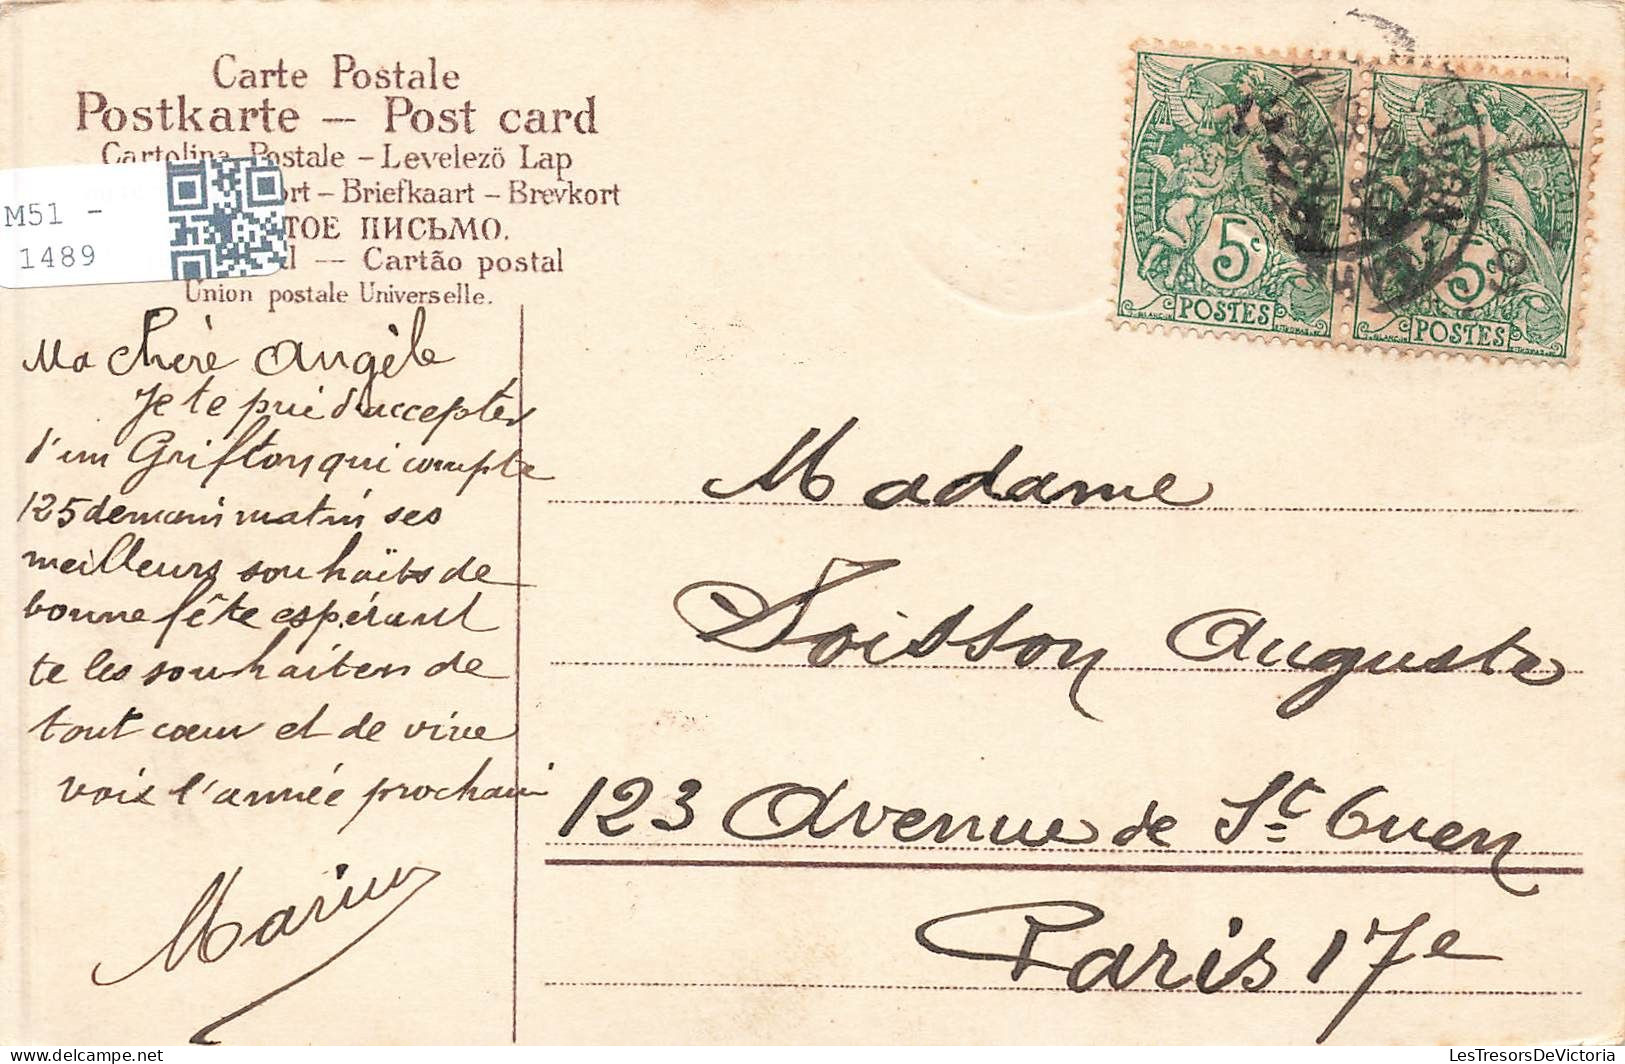 Carte Postale
Postkarte — Post card
Cartolina Postale – Levelezö Lap
ort – Briefkaart – Brevkort
ТОЕ ПИСЬМО.
l — Cartão postal
Union postale Universelle.
M51 -
1489
5c
POSTES
5c
POSTES
Ma Chère Angèle
Je te prie d'accepter
d'un Grifton qui compte
125 demain matin ses
meilleurs souhaits de
bonne fête espérant
te les souhaiter de
tout cœur et de vive
voix l'année prochain
Marius
Madame
Soisson Auguste
123 Avenue de St Ouen
Paris 17e
LesTresorsDeVictoria
delcampe.net